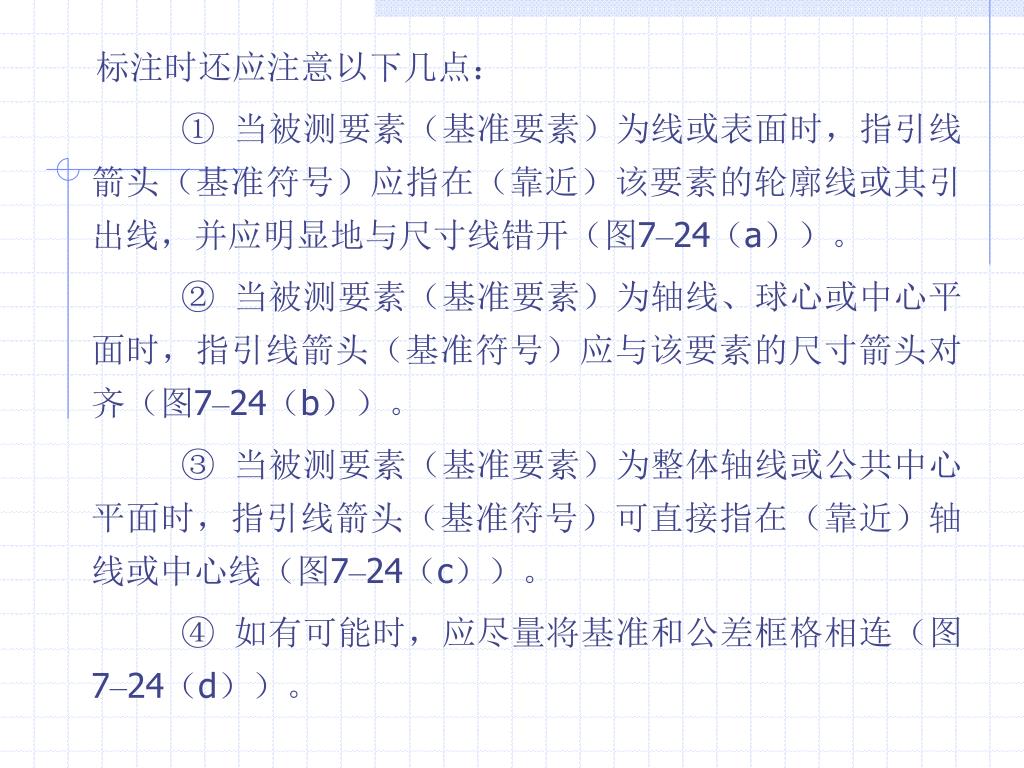 标注时还应注意以下几点：
① 当被测要素（基准要素）为线或表面时，指引线
箭头（基准符号）应指在（靠近）该要素的轮廓线或其引
出线，并应明显地与尺寸线错开（图7–24（a））。
② 当被测要素（基准要素）为轴线、球心或中心平
面时，指引线箭头（基准符号）应与该要素的尺寸箭头对
齐（图7–24（b））。
③ 当被测要素（基准要素）为整体轴线或公共中心
平面时，指引线箭头（基准符号）可直接指在（靠近）轴
线或中心线（图7–24（c））。
④ 如有可能时，应尽量将基准和公差框格相连（图
7–24（d））。